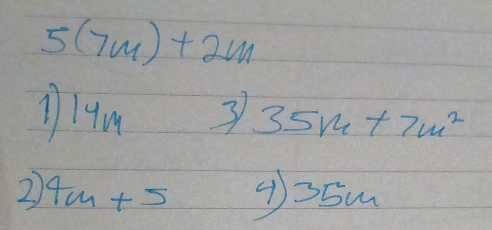 5(7m)+2m
1) 14m 3) 35m + 7m²
2) 4m + 5 4) 35m